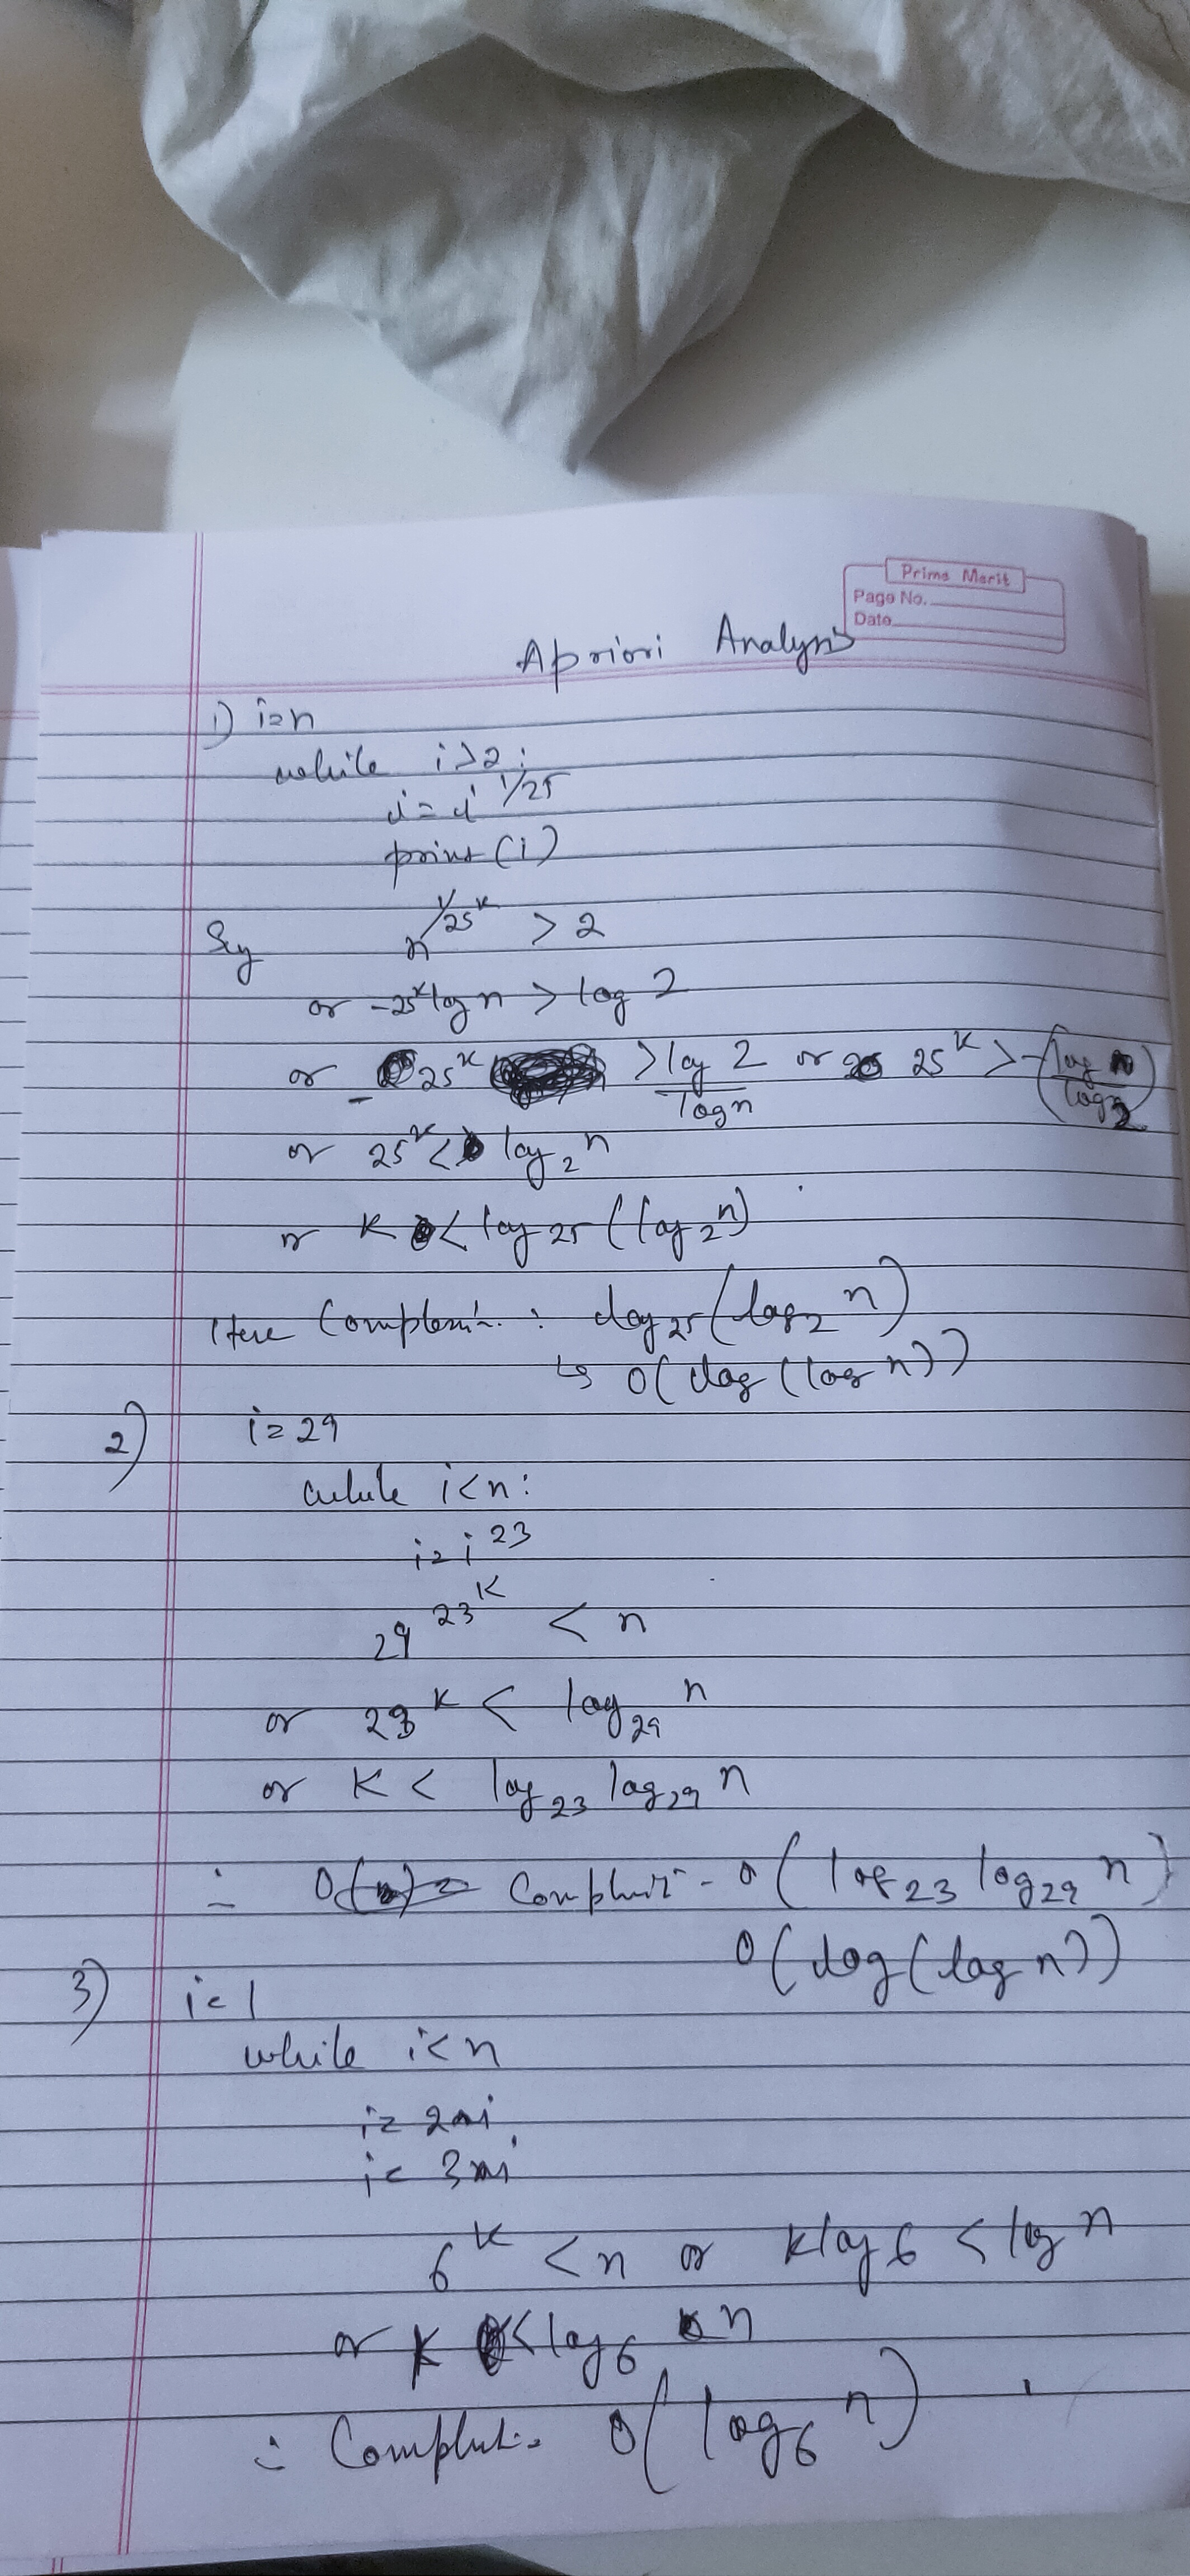 Prime Merit
Page No.
Date
Apriori Analysis
1) i=n
while i>2:
i = i^1/25
print(i)
n^1/25^k > 2
or -25^k log n > log 2
or - 25^k > log 2 / log n or 25^k > -(log n / log 2)
or 25^k < log_2 n
or k < log_25 (log_2 n)
log_25 (log_2 n)
↳ O(log (log n))
2) i=29
while i<n:
i=i^23
29^23^k < n
or 23^k < log_29 n
or k < log_23 log_29 n
∴ O(log_23 log_29 n)
O(log(log n))
3) i=1
while i<n
i= 2*i
i= 3*i
6^k < n or k log 6 < log n
or k < log_6 n
∴ O(log_6 n)